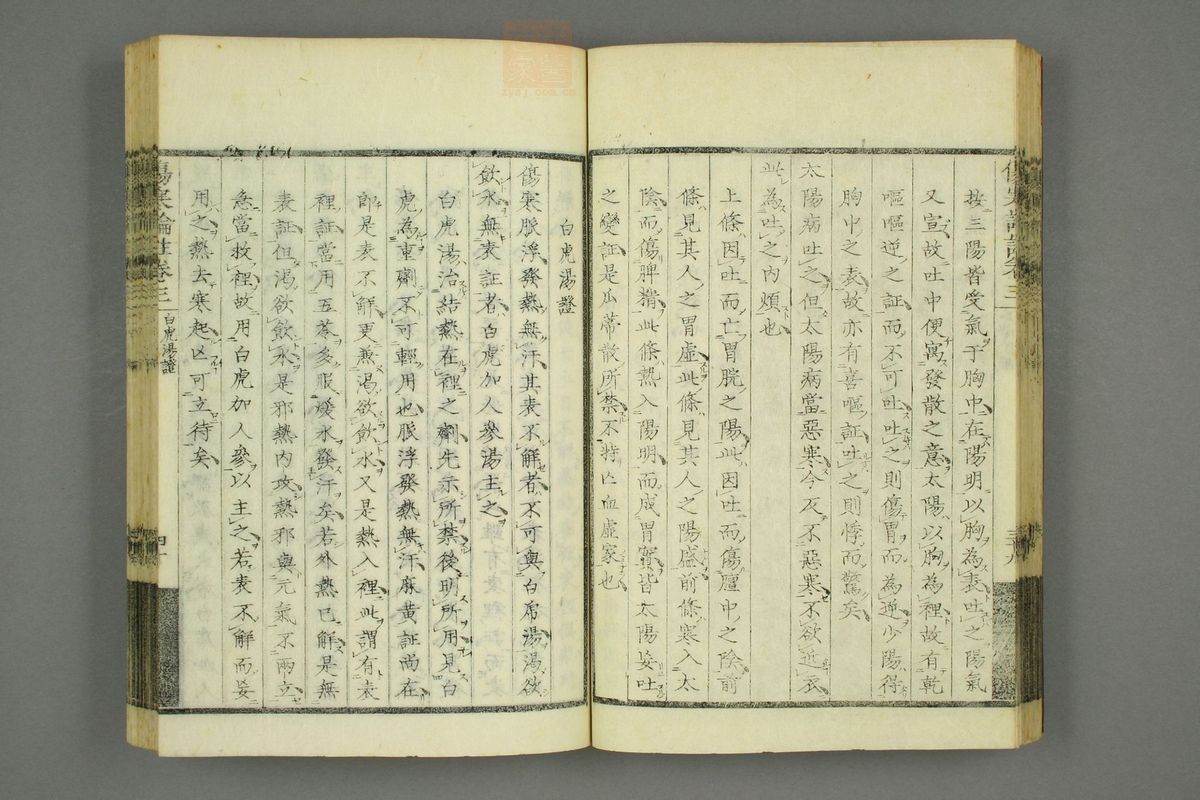 按三陽皆受氣于胸中在陽明以胸為表吐之陽氣
又宣故吐中便寓發散之意太陽以胸為裡故有乾
嘔嘔逆之証而不可吐吐之則傷胃而為逆少陽得
胸中之表故亦有喜嘔証吐之則悸而驚矣
太陽病吐之但太陽病當惡寒今反不惡寒不欲近衣
此為吐之內煩也
上條因吐而亡胃脘之陽此因吐而傷膻中之陰前
條見其人之胃虛此條見其人之陽盛前條寒入太
陰而傷脾精此條熱入陽明而成胃實皆太陽妄吐
之變証是瓜蒂散所禁不特亡血虛家也
白虎湯證
傷寒脈浮發熱無汗其表不解者不可與白虎湯渴欲
飲水無表証者白虎加人參湯主之
白虎湯治結熱在裡之劑先示所禁後明所用見白
虎為重劑不可輕用也脈浮發熱無汗麻黃証尚在
即是表不解更兼渴欲飲水又是熱入裡此謂有表
裡証當用五苓多服煖水發汗矣若外熱已解是無
表証但渴欲飲水是邪熱內攻熱邪與元氣不兩立
急當救裡故用白虎加人參以主之若表不解而妄
用之熱去寒起亡可立待矣
傷寒論註卷三
白虎湯證
四十
zysj.com.cn